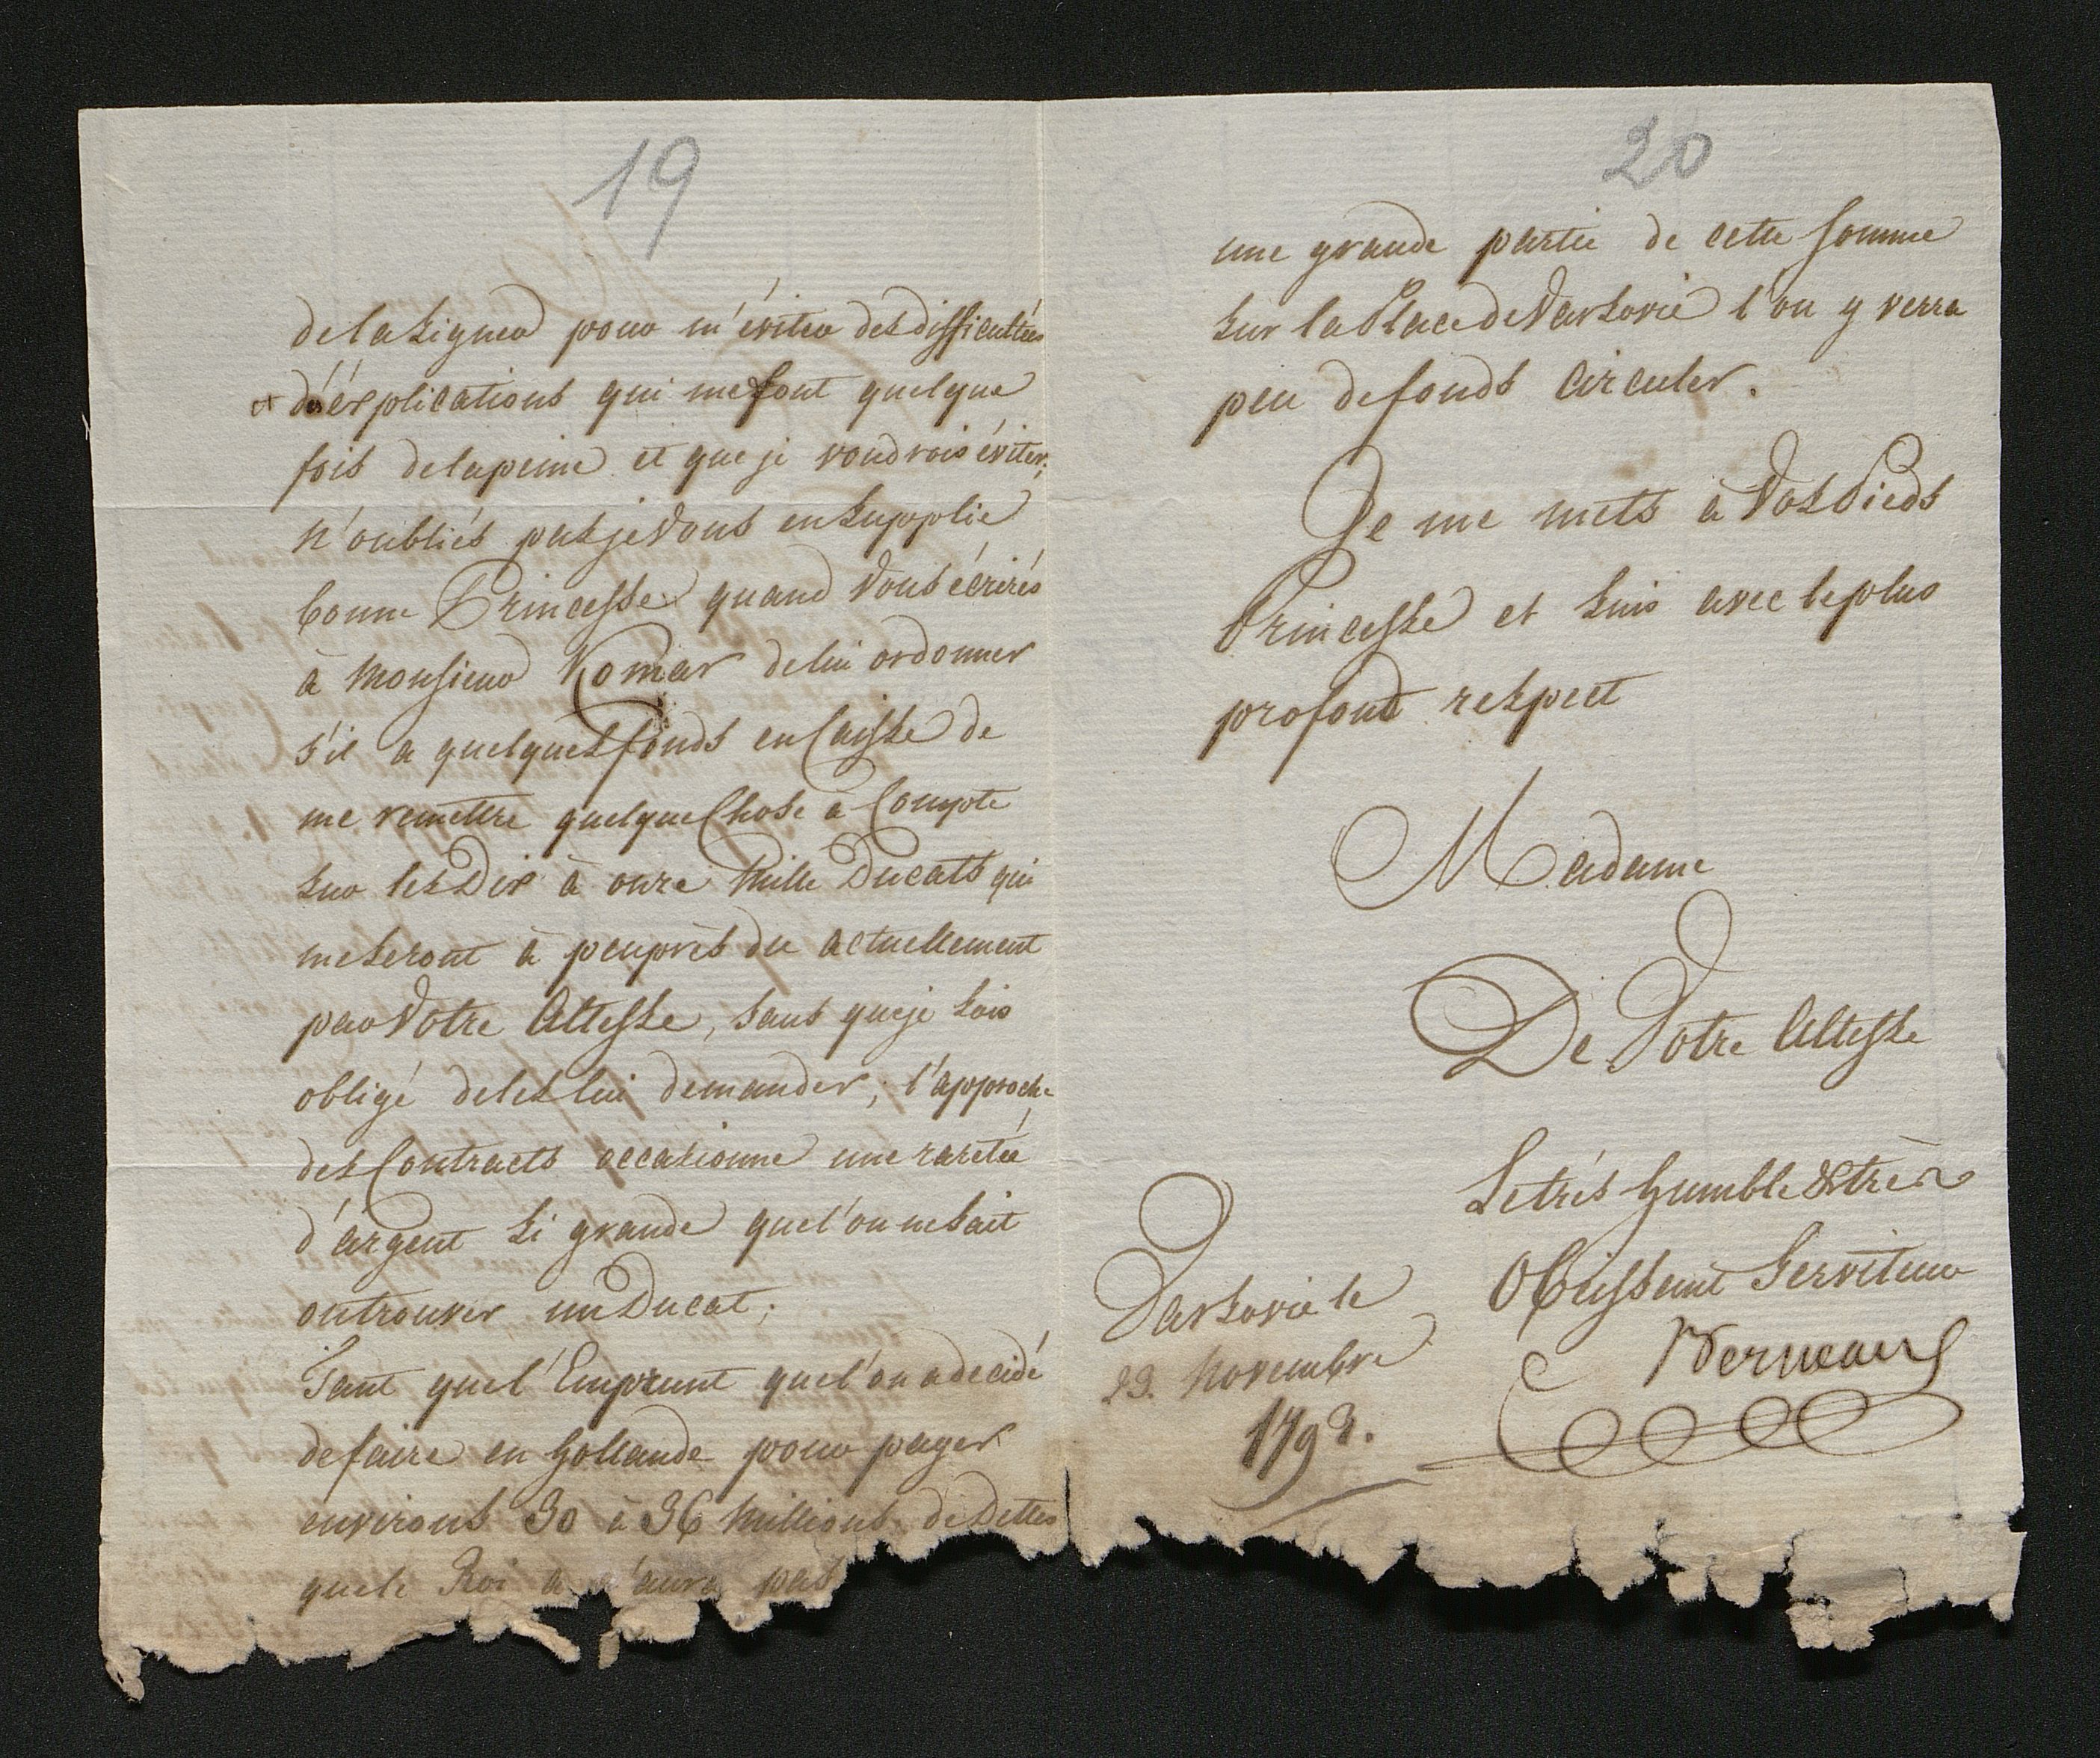 19
de la signer pour m'éviter des difficultées
et d'éxplications qui me font quelque
fois de la peine et que je voudrois éviter;
n'oubliés pas je Vous en supplie
bonne Princesse quand Vous écrirés
à Monsieur Komar de lui ordonner
s'il a quelques fonds en Caisse de
me remettre quelque Chose à Compte
sur les Dix à onze Mille Ducats qui
me seront à peuprès du actuellement
par Votre Altesse, sans que je sois
obligé de les lui demander; l'approche
des Contracts occasionne une raretée
d'argent si grande que l'on ne sait
ou trouver un Ducat;
Tant que l'Emprunt que l'on a decidé
de faire en hollande pour payer
environs 30 à 36 Millions de Dettes
que le Roi a n'aura pas
20
une grande partie de cette somme
sur la Place de Varsovie l'on y verra
peu de fonds circuler.
Je me mets à Vos Pieds
Princesse et suis avec le plus
profond respect
Madame
De Votre Altesse
Le trés humble & très
Obeissant Serviteur
Varsovie le
23. Novembre
1793.